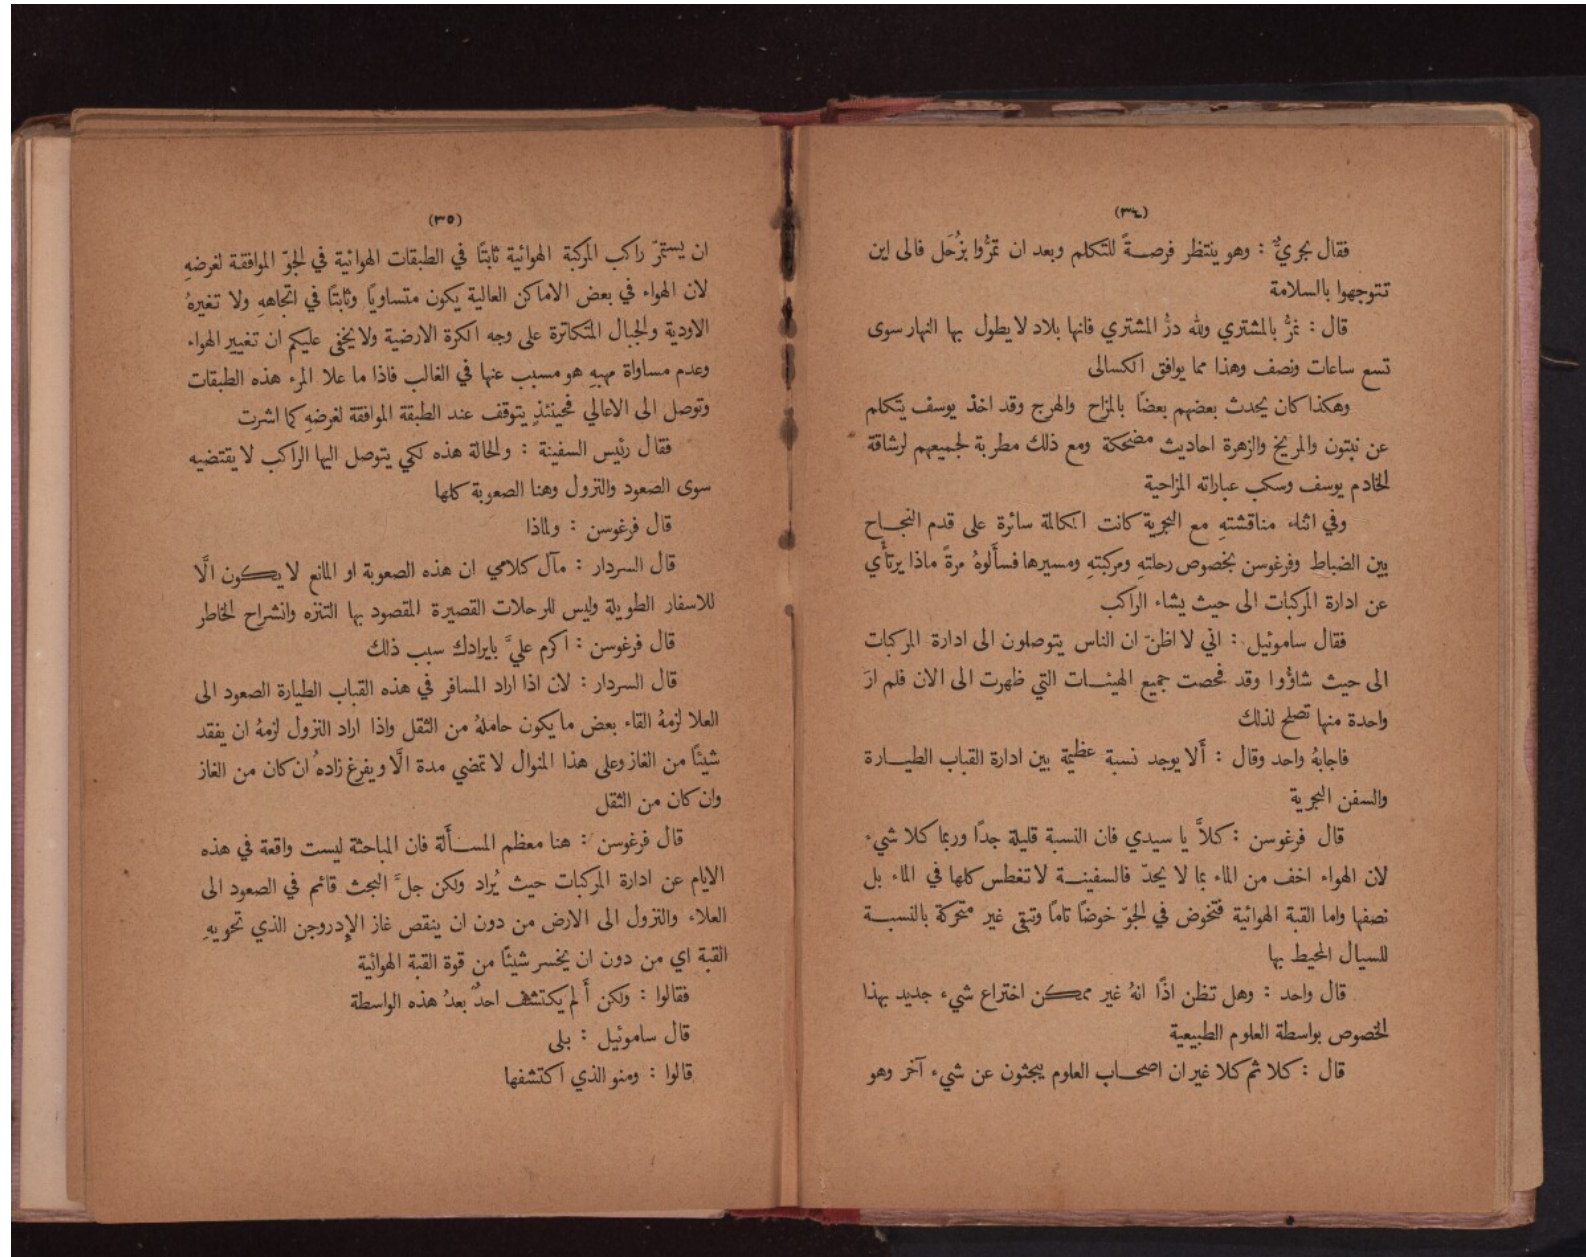 (٣٤)
فقال بحريٌّ : وهو ينتظر فرصــةً للتكلم وبعد ان تمرُّوا بزُحَل فالى اين
تتوجهوا بالسلامة
قال : نمرُّ بالمشتري ولله درُّ المشتري فانها بلاد لا يطول بها النهار سوى
تسع ساعات ونصف وهذا مما يوافق الكسالى
وهكذا كان يحدث بعضهم بعضًا بالمزاح والهرج وقد اخذ يوسف يتكلم
عن نبتون والمريخ والزهرة احاديث مضحكة ومع ذلك مطربة لجميعهم لرشاقة
الخادم يوسف وسكب عباراته المزاحية
وفي اثناء مناقشتهِ مع البحرية كانت المكالمة سائرة على قدم النجــاح
بين الضباط وفرغوسن بخصوص رحلتهِ ومركبتهِ ومسيرها فسأَلوهُ مرةً ماذا يرتأَي
عن ادارة المركبات الى حيث يشاء الراكب
فقال ساموئيل : اني لا اظنّ ان الناس يتوصلون الى ادارة المركبات
الى حيث شاؤوا وقد فحصت جميع الهيئــات التي ظهرت الى الان فلم ارَ
واحدة منها تصلح لذلك
فاجابهُ واحد وقال : أَلا يوجد نسبة عظيمة بين ادارة القباب الطيــارة
والسفن البحرية
قال فرغوسن : كلاَّ يا سيدي فان النسبة قليلة جدًا وربما كلا شيء
لان الهواء اخف من الماء بما لا يحدّ فالسفينــة لا تغطس كلها في الماء بل
نصفها واما القبة الهوائية فتخوض في الجوّ خوضًا تامًا وتبقى غير متحركة بالنسبــة
للسيال المحيط بها
قال واحد : وهل تظن اذًا انهُ غير ممكن اختراع شيء جديد بهذا
الخصوص بواسطة العلوم الطبيعية
قال : كلا ثم كلا غير ان اصحــاب العلوم يبحثون عن شيء آخر وهو
(٣٥)
ان يستمرّ راكب المركبة الهوائية ثابتًا في الطبقات الهوائية في الجوّ الموافقة لغرضهِ
لان الهواء في بعض الاماكن العالية يكون متساويًا وثابتًا في اتجاههِ ولا تغيرهُ
الاودية والجبال المتكاثرة على وجه الكرة الارضية ولا يخفى عليكم ان تغيير الهواء
وعدم مساواة مهبهِ هو مسبب عنها في الغالب فاذا ما علا المرء هذه الطبقات
وتوصل الى الاعالي فحينئذٍ يتوقف عند الطبقة الموافقة لغرضهِ كما اشرت
فقال رئيس السفينة : والحالة هذه لكي يتوصل اليها الراكب لا يقتضيه
سوى الصعود والنزول وهنا الصعوبة كلها
قال فرغوسن : ولماذا
قال السردار : مآل كلامي ان هذه الصعوبة او المانع لا يكون الَّا
للاسفار الطويلة وليس للرحلات القصيرة المقصود بها التنزه وانشراح الخاطر
قال فرغوسن : اكرم عليَّ بايرادك سبب ذلك
قال السردار : لان اذا اراد المسافر في هذه القباب الطيارة الصعود الى
العلا لزمهُ القاء بعض ما يكون حاملهُ من الثقل واذا اراد النزول لزمهُ ان يفقد
شيئًا من الغاز وعلى هذا المنوال لا تمضي مدة الَّا ويفرغ زادهُ ان كان من الغاز
وان كان من الثقل
قال فرغوسن : هنا معظم المســأَلة فان المباحثة ليست واقعة في هذه
الايام عن ادارة المركبات حيث يُراد ولكن جلَّ البحث قائم في الصعود الى
العلاء والنزول الى الارض من دون ان ينقص غاز الإِدروجن الذي تحويهِ
القبة اي من دون ان يخسر شيئًا من قوة القبة الهوائية
فقالوا : ولكن أَلم يكتشف احدٌ بعدُ هذه الواسطة
قال ساموئيل : بلى
قالوا : ومنو الذي اكتشفها